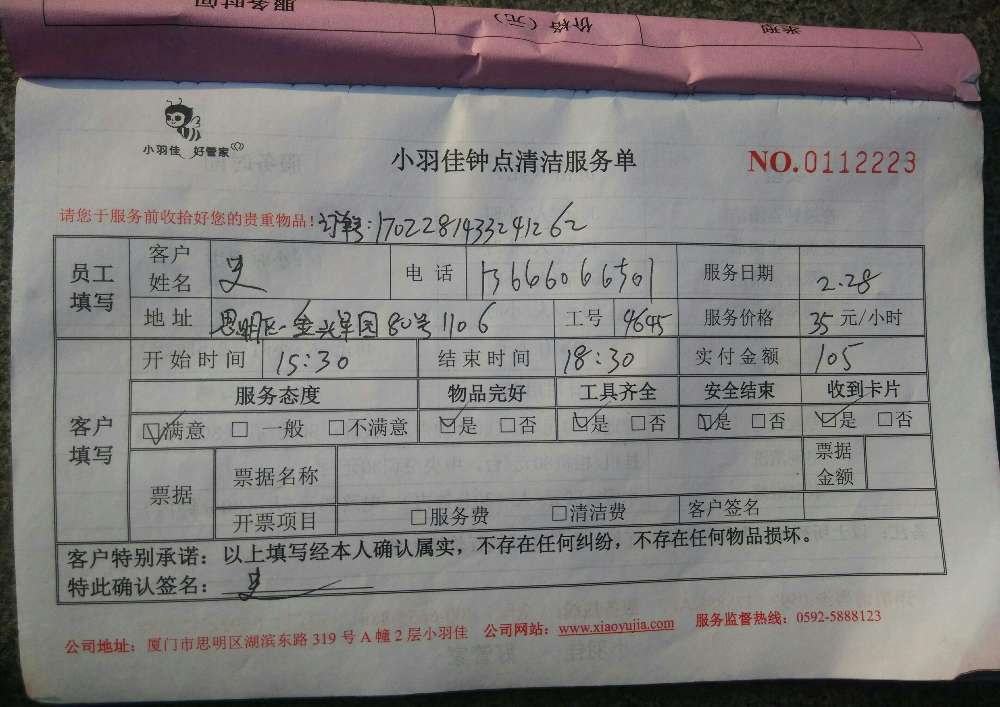 服务时间 价格（元） 类型
小羽佳 好管家
小羽佳钟点清洁服务单
NO.0112223
请您于服务前收拾好您的贵重物品! 订单号:1702281433241262
员工填写 客户姓名 史 电话 13666066501 服务日期 2.28
地址 思明区-金兴羊园80号1106 工号 4645 服务价格 35元/小时
客户填写 开始时间 15:30 结束时间 18:30 实付金额 105
服务态度 物品完好 工具齐全 安全结束 收到卡片
☑满意 □ 一般 □不满意 ☑是 □否 ☑是 □否 ☑是 □否 ☑是 □否
票据 票据名称 票据金额
开票项目 □服务费 □清洁费 客户签名
客户特别承诺：以上填写经本人确认属实，不存在任何纠纷，不存在任何物品损坏。
特此确认签名：史
公司地址：厦门市思明区湖滨东路 319 号 A 幢 2 层小羽佳 公司网站：www.xiaoyujia.com 服务监督热线：0592-5888123